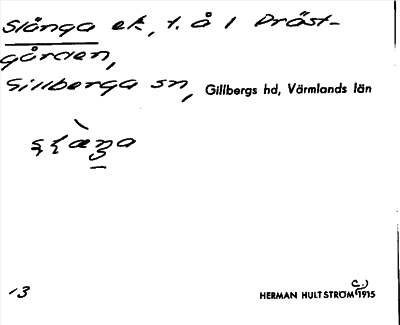 Slånga ek, t. å 1 Präst-
gården,
Gillberga sn, Gillbergs hd, Värmlands län
13
HERMAN HULTSTRÖM (C.) 1915